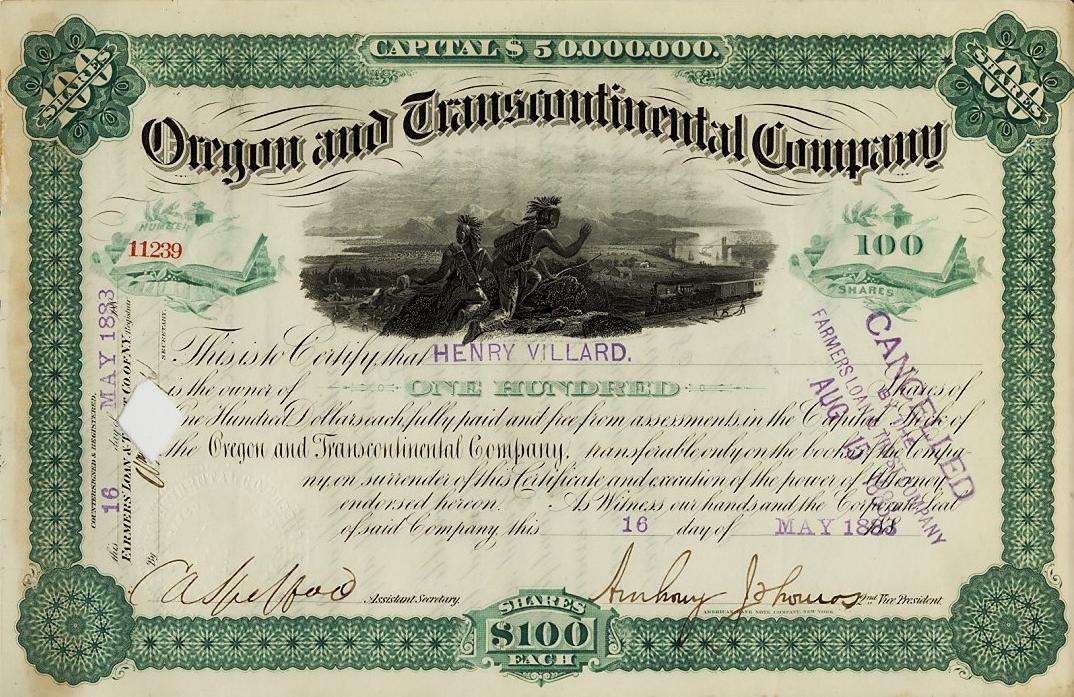 CAPITAL $50.000.000.
100 SHARES
100 SHARES
Oregon and Transcontinental Company
NUMBER
11239
100
SHARES
This is to Certify, that HENRY VILLARD.
is the owner of ONE HUNDRED Shares of
One Hundred Dollars each, fully paid and free from assessments, in the Capital Stock of
the Oregon and Transcontinental Company, transferable only on the books of the Compa-
ny, on surrender of this Certificate and execution of the power of Attorney
endorsed hereon. As Witness our hands and the Corporate Seal
of said Company, this 16 day of MAY 1883
CANCELLED
BY THE
FARMERS LOAN & TRUST COMPANY
AUG 15
COUNTERSIGNED & REGISTERED,
this 16 day of MAY 1883
FARMERS' LOAN & T CO. OF N.Y. Registrar
By
SECRETARY.
Assistant Secretary.
Anthony J. Thomas 2nd Vice President.
AMERICAN BANK NOTE COMPANY, NEW YORK
SHARES
$100
EACH